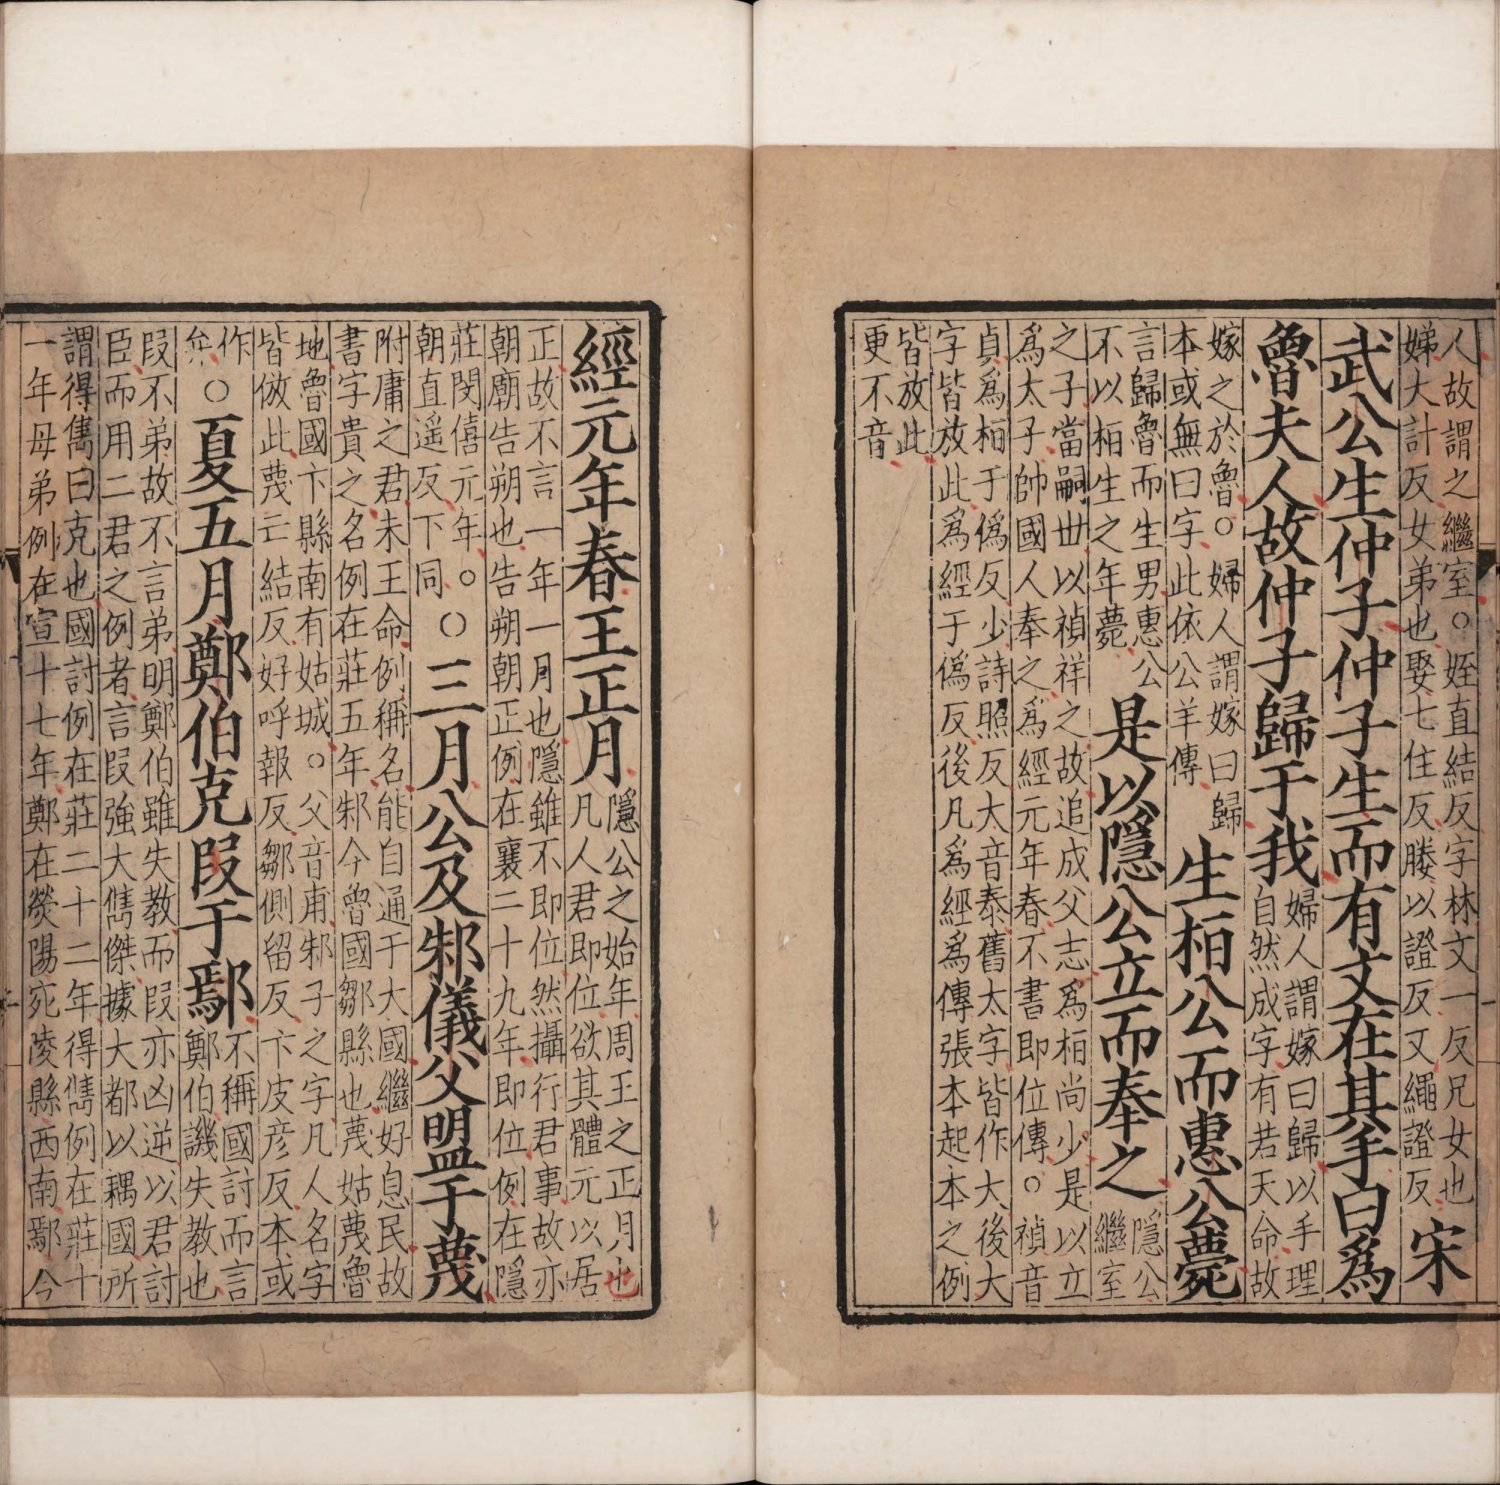 人故謂之繼室○姪直結反字林文一反兄女也
娣大計反女弟也娶七住反媵以證反又繩證反
宋
武公生仲子仲子生而有文在其手曰爲
魯夫人故仲子歸于我
婦人謂嫁曰歸以手理
自然成字有若天命故
嫁之於魯○婦人謂嫁曰歸
本或無曰字此依公羊傳
生桓公而惠公薨
言歸魯而生男惠公
不以桓生之年薨
是以隱公立而奉之
隱公
繼室
之子當嗣世以禎祥之故追成父志爲桓尚少是以立
爲太子帥國人奉之爲經元年春不書即位傳○禎音
貞爲桓于僞反少詩照反大音泰舊太字皆作大後大
字皆放此爲經于僞反後凡爲經爲傳張本起本之例
皆放此
更不音
經元年春王正月
隱公之始年周王之正月也
凡人君即位欲其體元以居
正故不言一年一月也隱雖不即位然攝行君事故亦
朝廟告朔也告朔朝正例在襄二十九年即位例在隱
莊閔僖元年○
朝直遥反下同
○三月公及邾儀父盟于蔑
附庸之君未王命例稱名能自通于大國繼好息民故
書字貴之名例在莊五年邾今魯國鄒縣也蔑姑蔑魯
地魯國卞縣南有姑城○父音甫邾子之字凡人名字
皆倣此蔑亡結反好呼報反鄒側留反卞皮彦反本或
作
弁
○夏五月鄭伯克段于鄢
不稱國討而言
鄭伯譏失教也
段不弟故不言弟明鄭伯雖失教而段亦凶逆以君討
臣而用二君之例者言段強大儁傑據大都以耦國所
謂得儁曰克也國討例在莊二十二年得儁例在莊十
一年母弟例在宣十七年鄭在滎陽宛陵縣西南鄢今